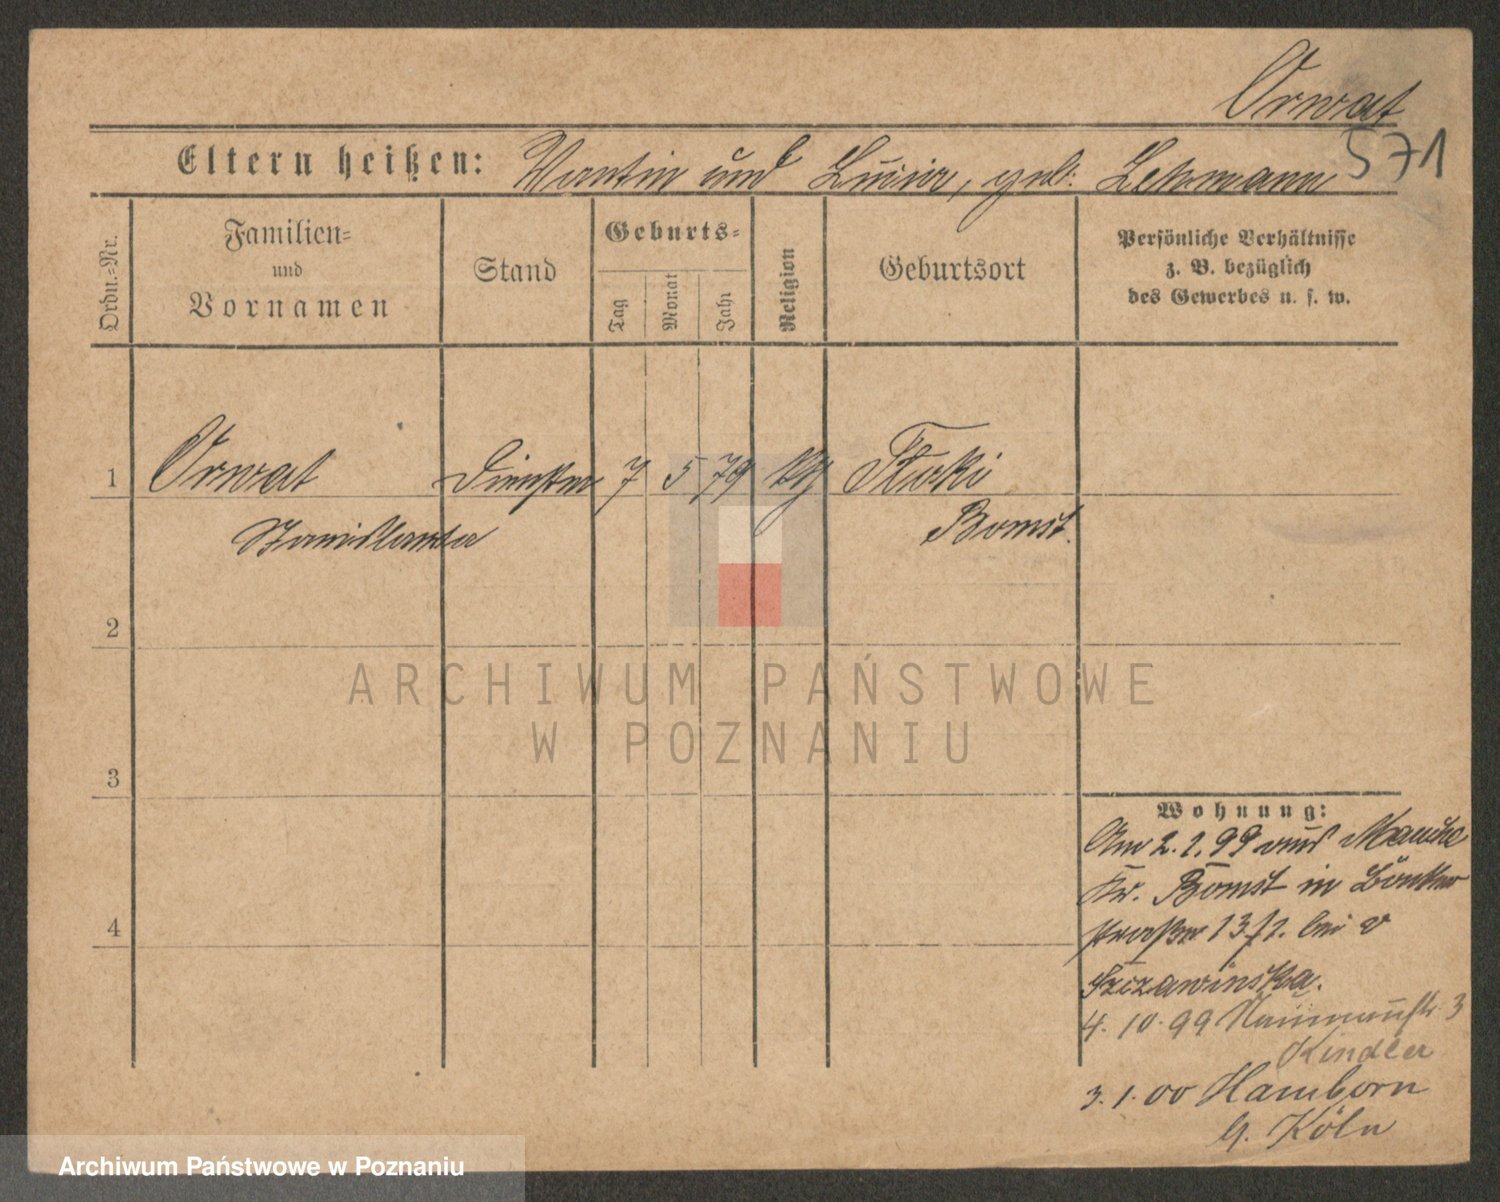 Orwat
571
Eltern heißen: Martin und Lucia, geb. Lehmann
Ordn.-Nr.
Familien- und Vornamen
Stand
Geburts-
Tag
Monat
Jahr
Religion
Geburtsort
Persönliche Verhältnisse
z. B. bezüglich
des Gewerbes u. s. w.
1 Orwat 7 5 79 kth
Stanislawa Bomst.
2
3
4
Wohnung:
Am 2.1.99 aus
Kr. Bomst in
straße 13/1. bei
Szczawinska.
4.10.99 Naumannstr. 3
Kindler
3.1.00 Hamborn
b. Köln
ARCHIWUM PAŃSTWOWE
W POZNANIU
Archiwum Państwowe w Poznaniu